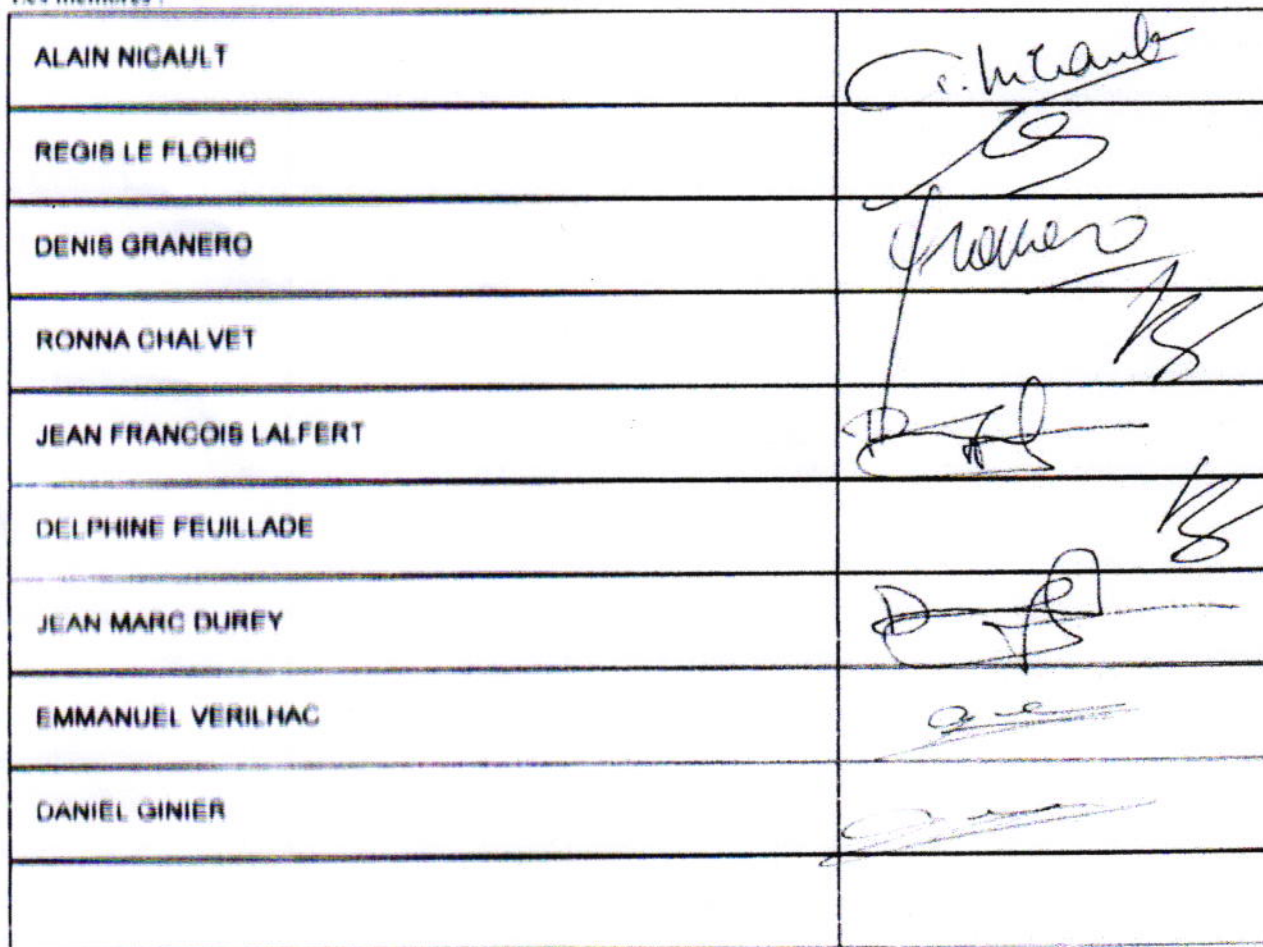 Les membres :
ALAIN NICAULT
REGIS LE FLOHIC
DENIS GRANERO
RONNA CHALVET
JEAN FRANCOIS LALFERT
DELPHINE FEUILLADE
JEAN MARC DUREY
EMMANUEL VERILHAC
DANIEL GINIER